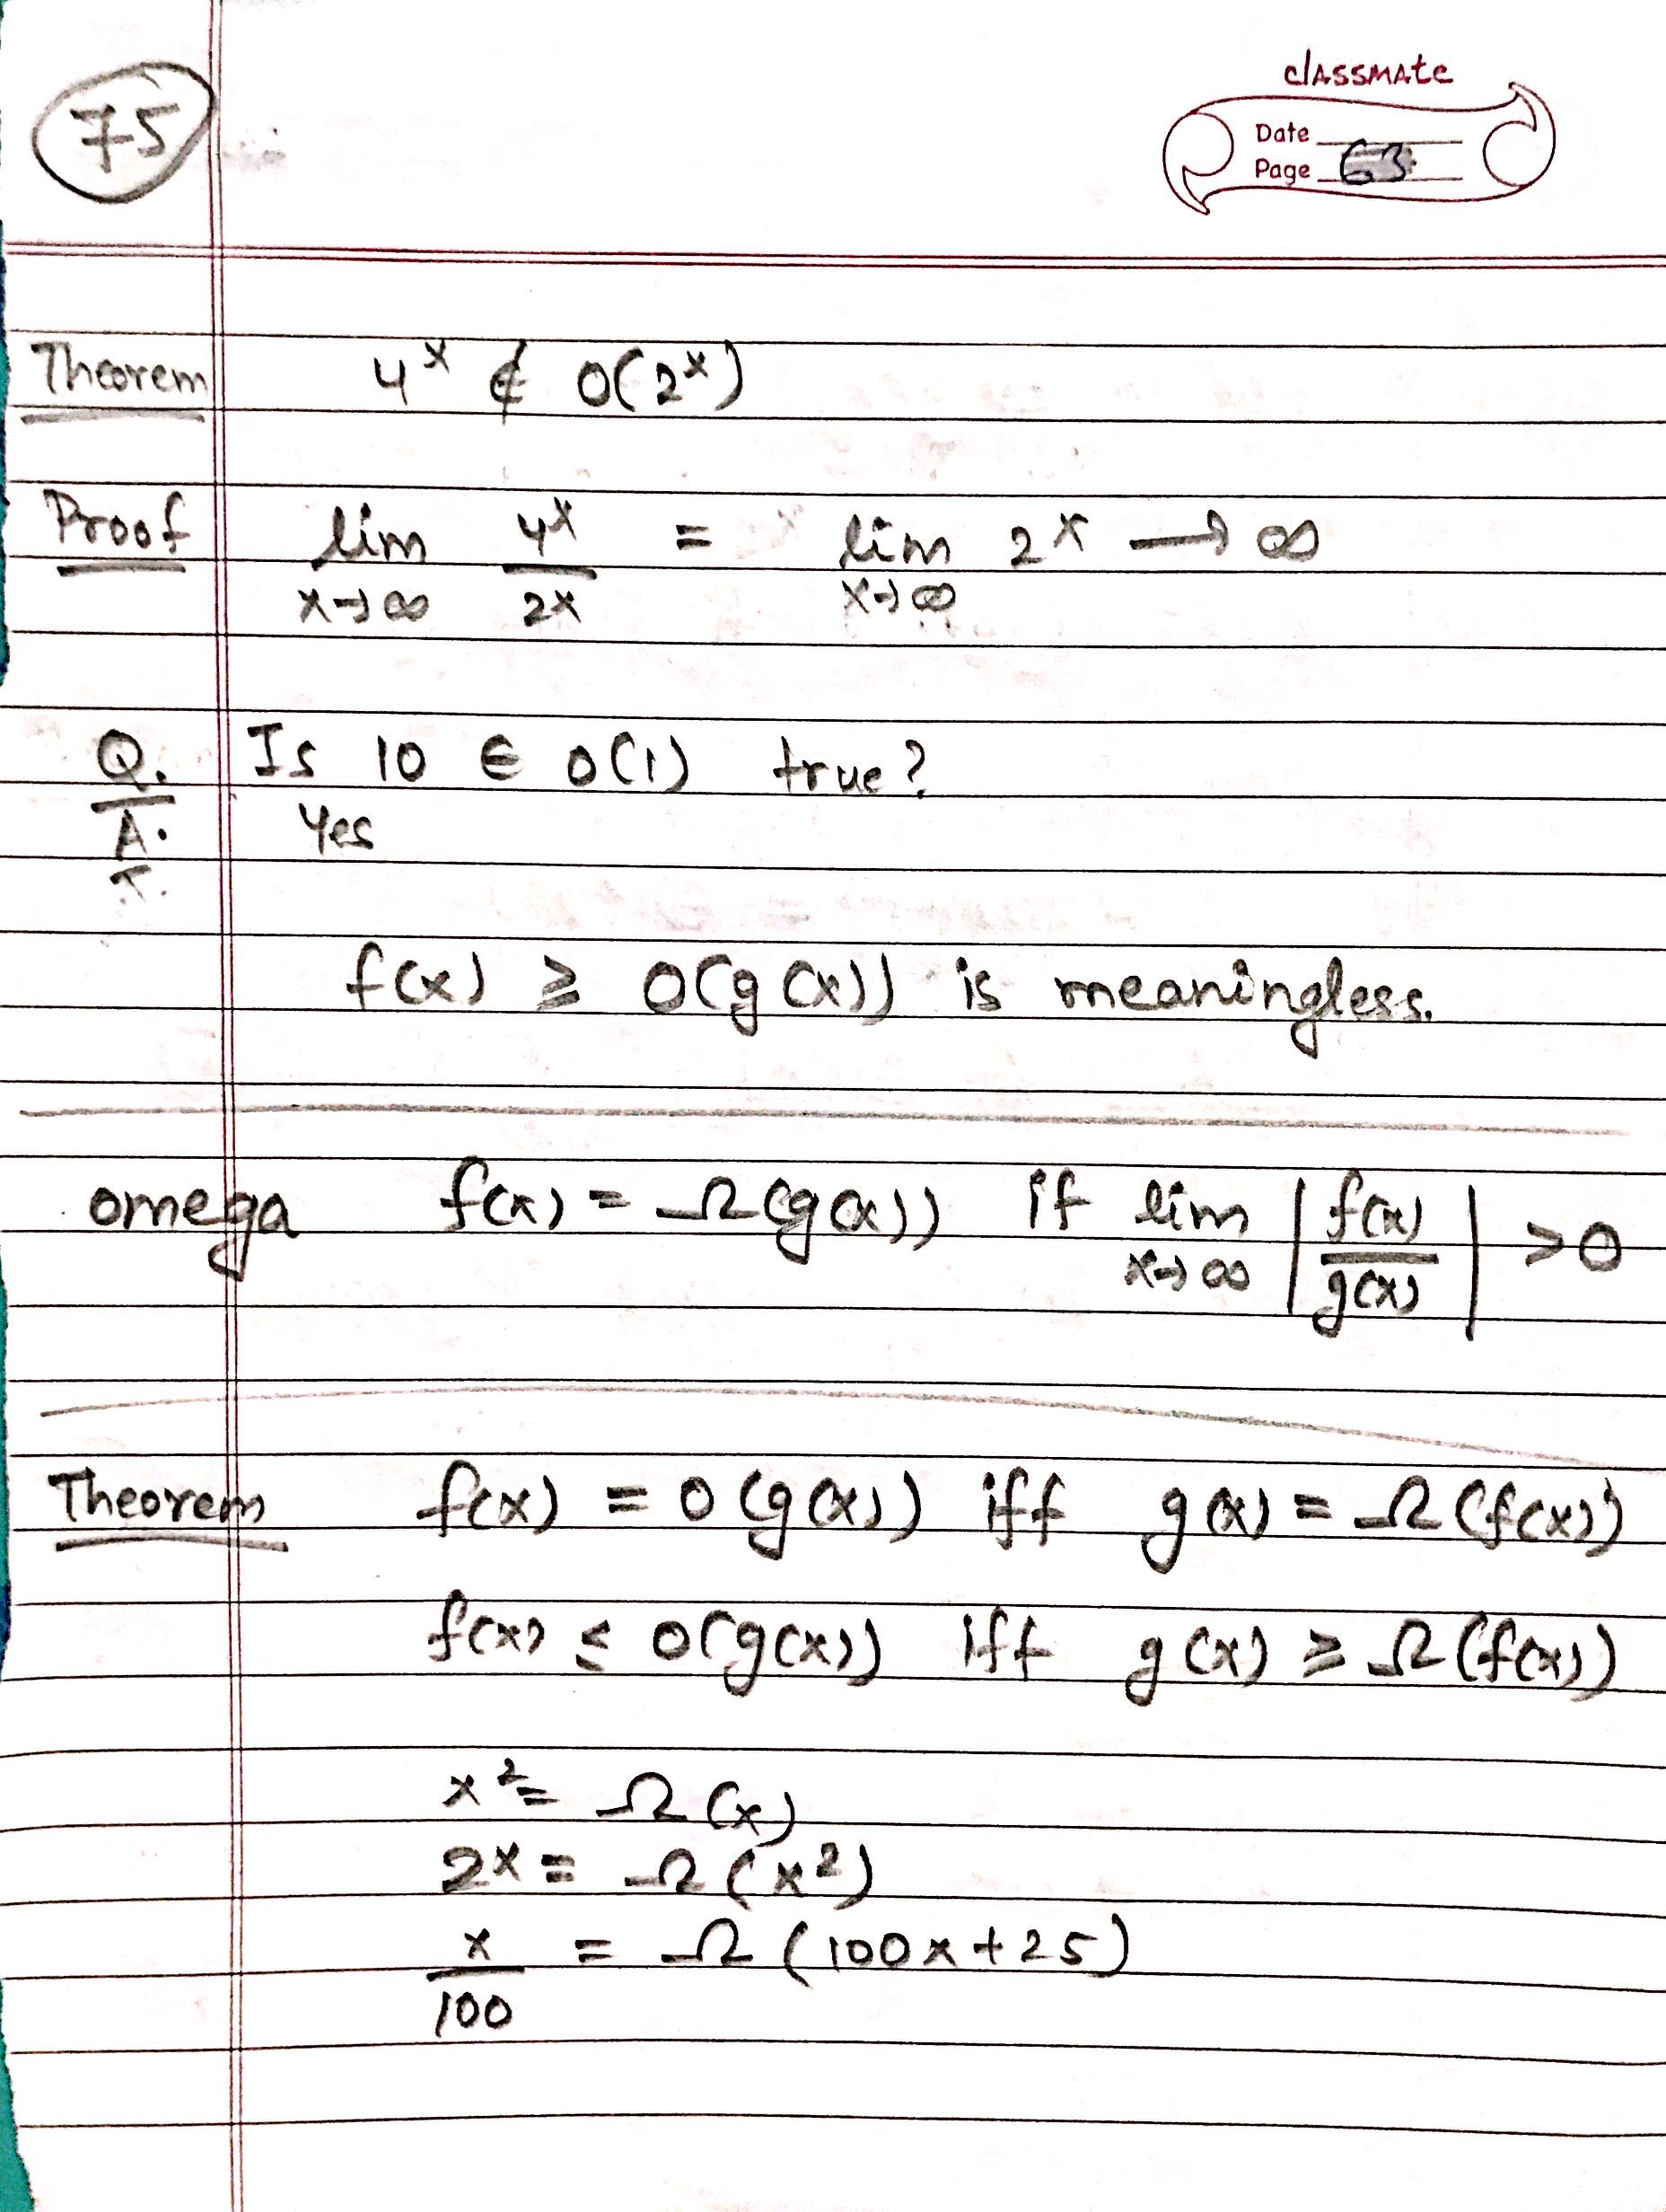 75
classmate
Date
Page 63
Theorem 4ˣ ∉ O(2ˣ)
Proof lim x→∞ 4ˣ/2ˣ = lim x→∞ 2ˣ → ∞
Q. Is 10 ∈ O(1) true?
A. Yes
f(x) ≥ O(g(x)) is meaningless.
omega f(x) = Ω(g(x)) if lim x→∞ |f(x)/g(x)| >0
Theorem f(x) = O(g(x)) iff g(x) = Ω(f(x))
f(x) ≤ O(g(x)) iff g(x) ≥ Ω(f(x))
x² = Ω(x)
2ˣ = Ω(x²)
x/100 = Ω(100x+25)